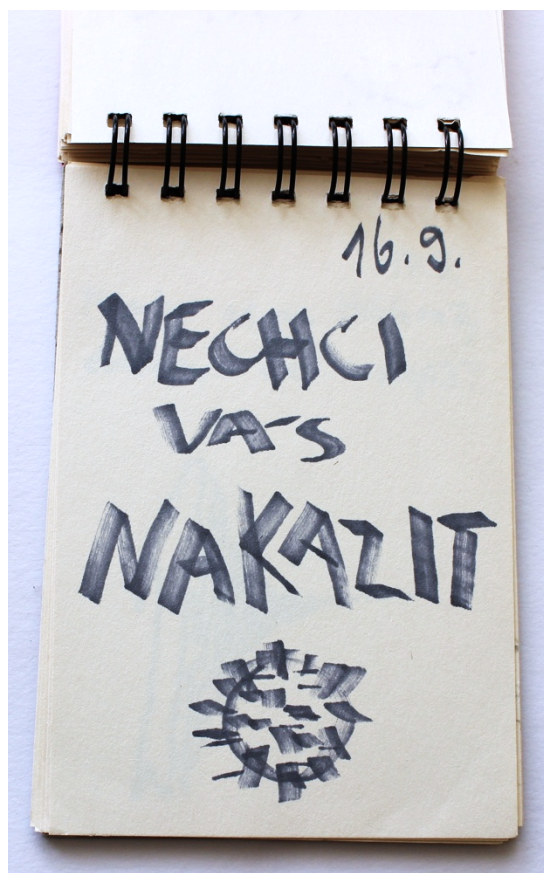 16.9.
NECHCI
VÁS
NAKAZIT